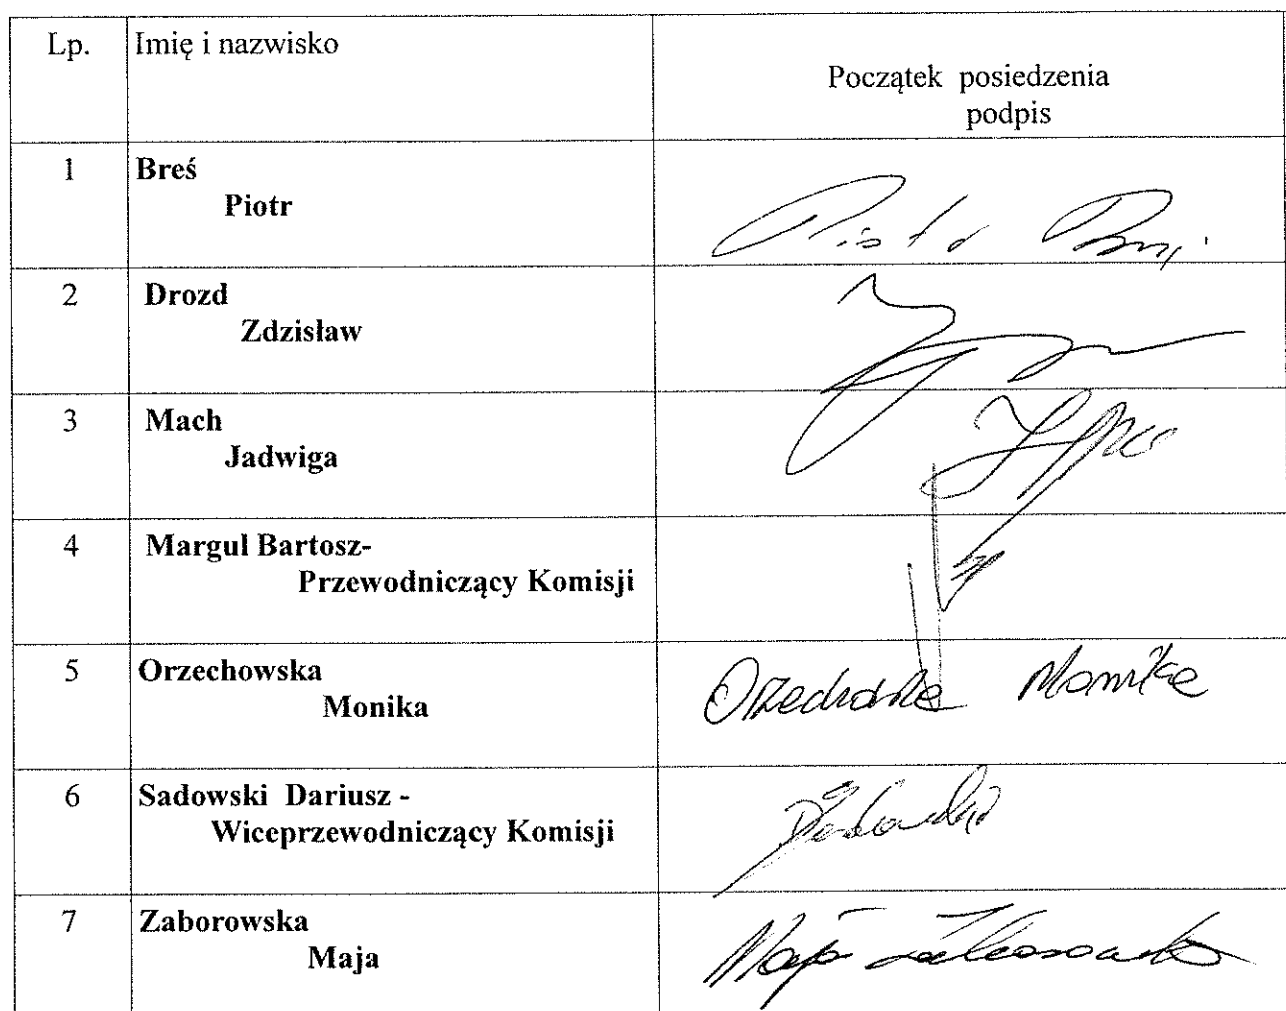 Lp.
Imię i nazwisko
Początek posiedzenia
podpis
1
Breś
Piotr
Piotr
2
Drozd
Zdzisław
3
Mach
Jadwiga
4
Margul Bartosz-
Przewodniczący Komisji
5
Orzechowska
Monika
Orzechowska Monika
6
Sadowski Dariusz -
Wiceprzewodniczący Komisji
7
Zaborowska
Maja
Maja Zaborowska